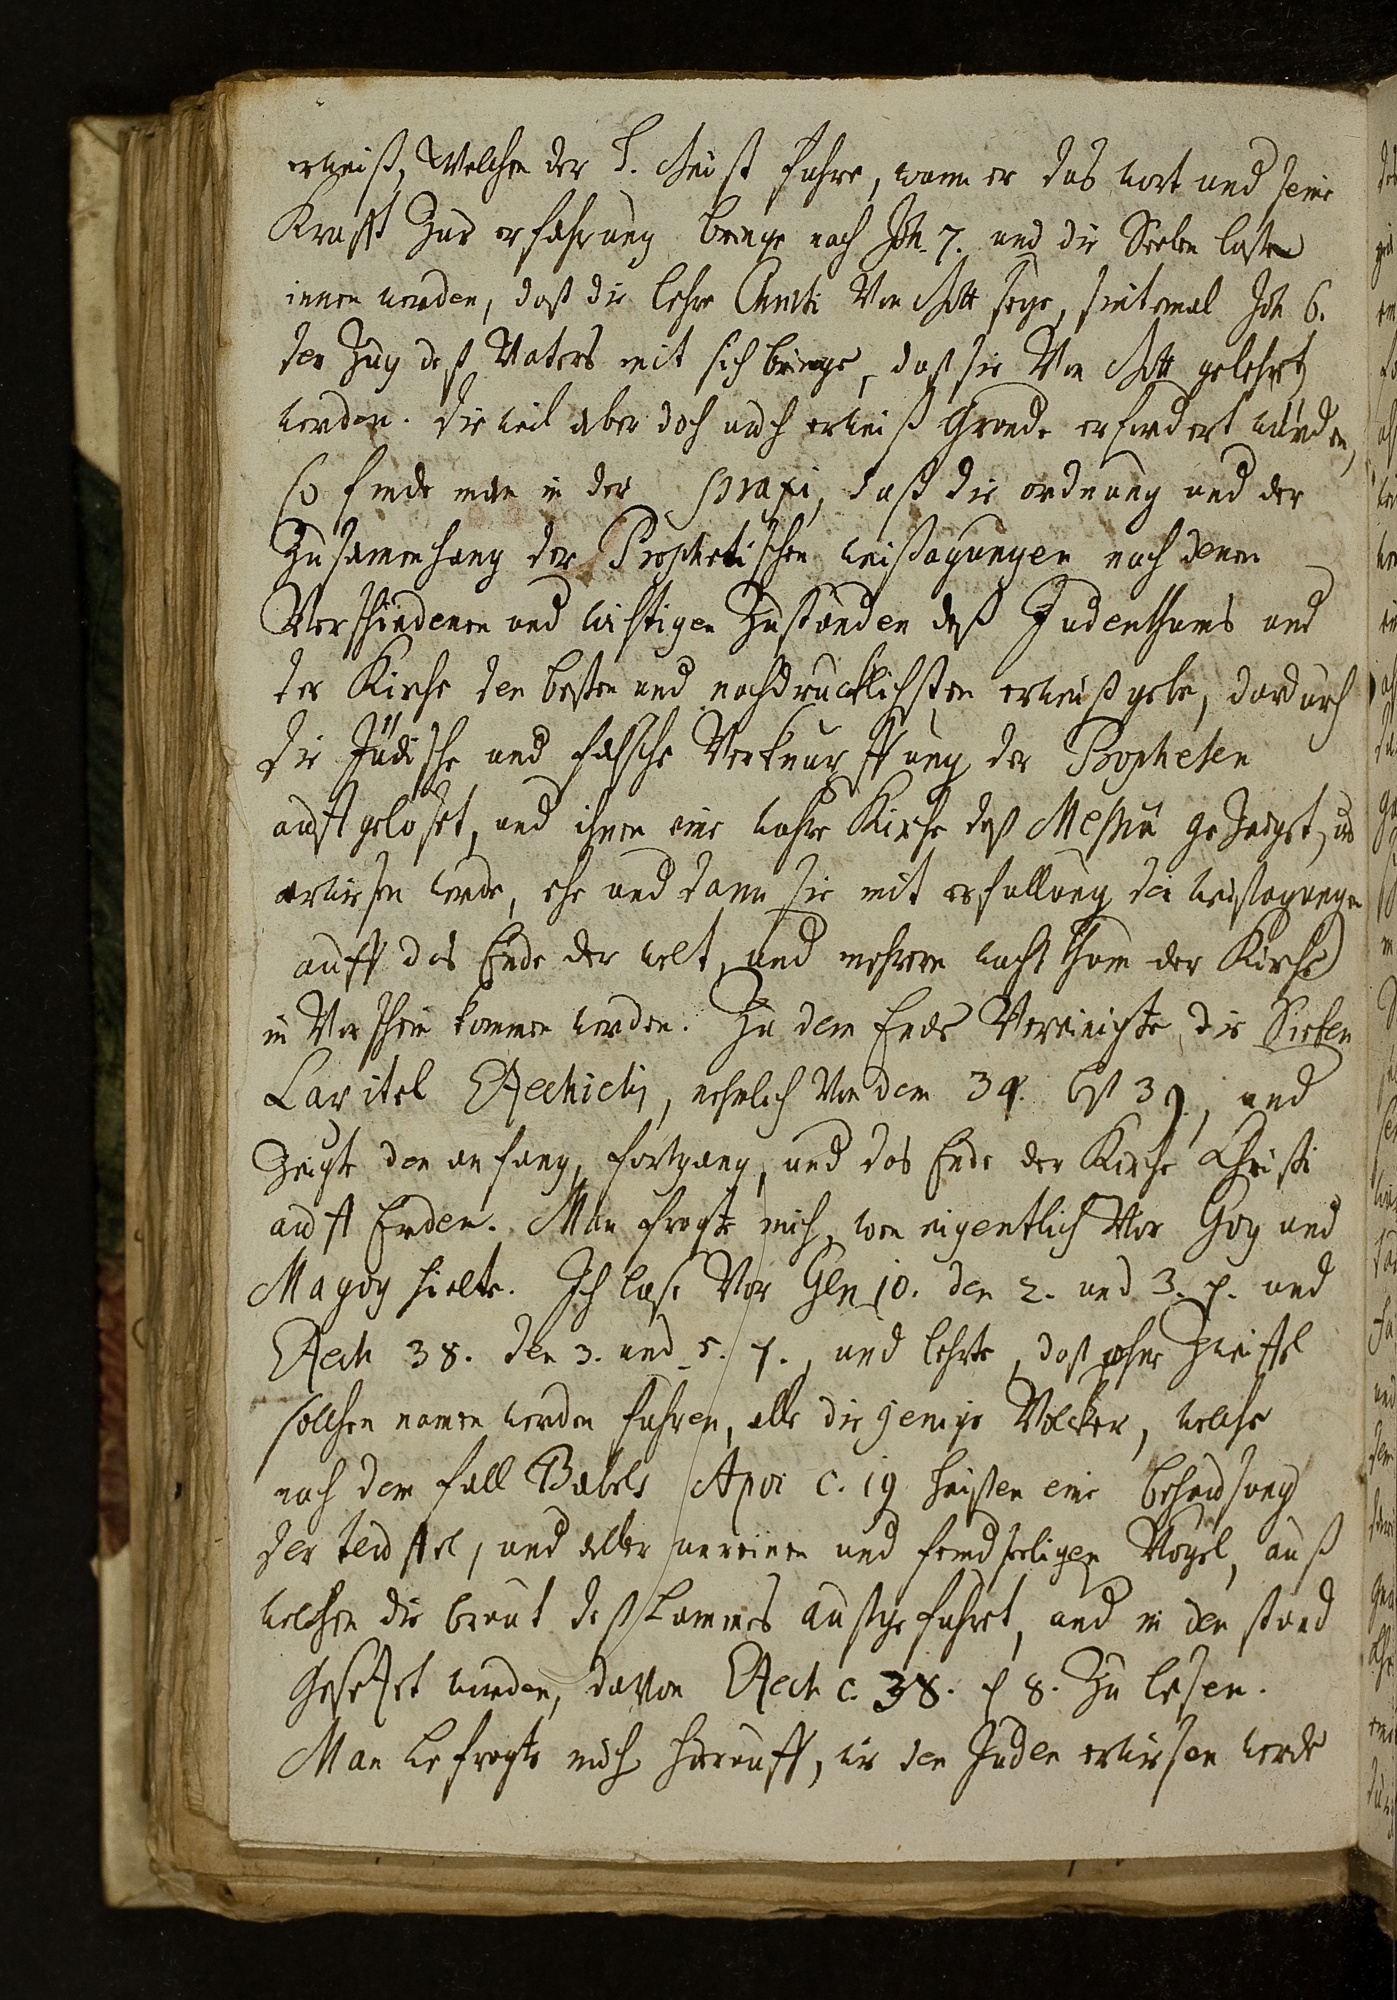 erweiß, Welchen der H. Geist führe, wann er das wort und seine
Krafft Zur erfahrung bringe nach Joh. 7. und die Seelen laße
innen werden, daß die lehre Christi Von Gott seye, sintemal Joh 6.
der Zug deß Vaters mit sich bringe, daß sie Von Gott gelehrt
werden. Die weil aber doch auch erweiß Gründe erfordert würden,
so finde man in der praxi, daß die ordnung und der
Zusamenhang der Prophetischen weißagungen nach denen
Verschiedenen und wichtigen Zuständen deß Judenthums und
der Kirche den besten und nachdrücklichsten erweiß gebe, dardurch
die Jüdische und falsche Verknüpffung der Propheten
auffgelöset, und ihnen eine wahre Kirche deß Messiä gezeiget, und
erwiesen werde, ehe und dann sie mit erfüllung der weißagungen
auff das Ende der welt, und mehrern wachsthum der Kirche
in Vorschein kommen werden. Zu dem Ende Vereinigte die Sieben
Capitel Ezechielis, nehmlich Von dem 34. biß 39., und
Zeigte den anfang, fortgang, und das Ende der Kirche Christi
auff Erden. Man fragte mich, wen eigentlich Vor Gog und
Magog hielte. Ich lase Vor Gen 10. den 2. und 3. v. und
Ezech 38. den 3. und 5. v., und lehrte, daß ohne Zweiffel
solchen namen werden führen, alle diejenige Völcker, welche
nach dem fall Babels Apoc c. 19 heisen eine behausung
der teuffel, und aller unreinen und feindseeligen Vögel, auß
welchen die braut deß Lammes außgeführt, und in den stand
gesetzet worden, davon Ezech c. 38. v 8. Zu lesen.
Man befragte mich hierauff, wie den Juden erwiesen werde